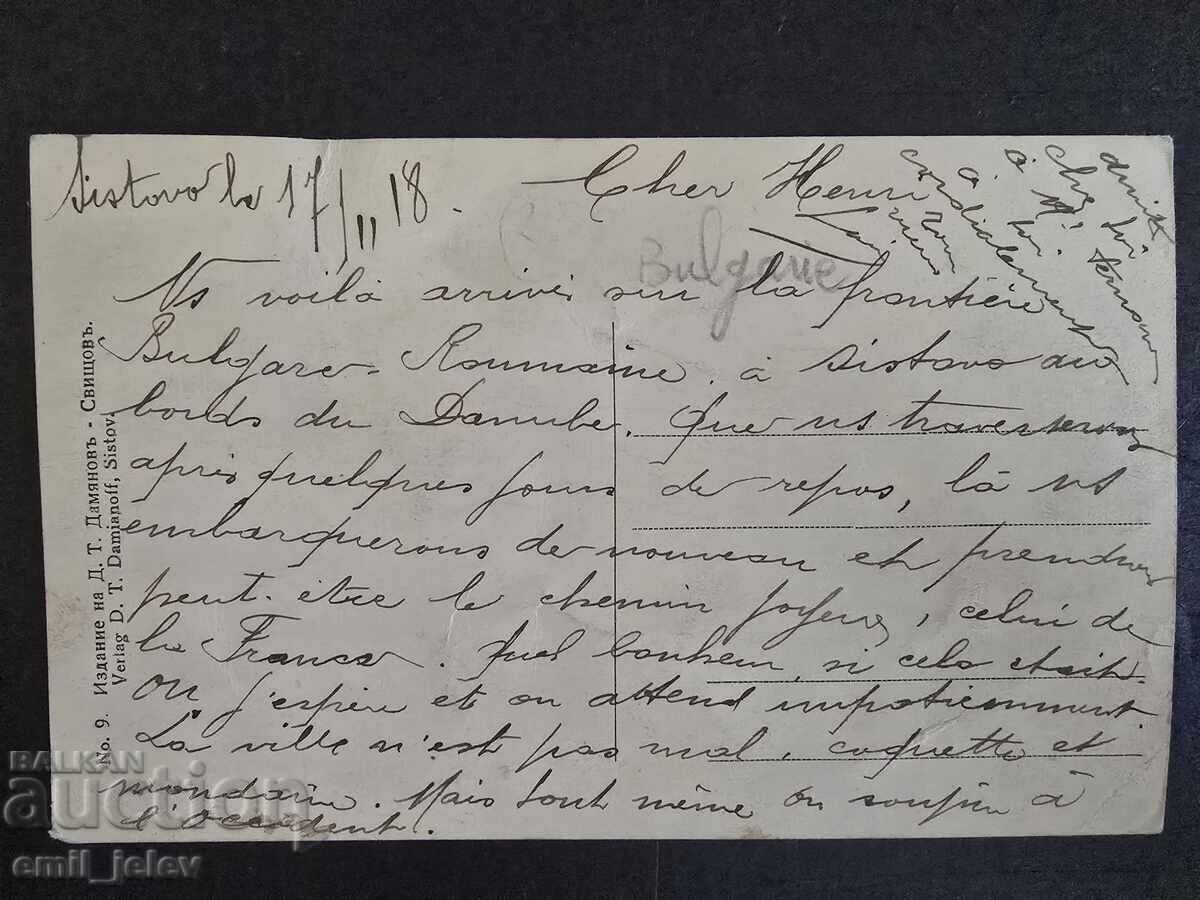 Sistovo le 17/11 18.
Cher Henri
Bulgarie
Ns voilà arrivés sur la frontière
Bulgare-Roumaine, à Sistovo au
bords du Danube. Que ns traverserons
après quelques jours de repos, là ns
embarquerons de nouveau et prendrons
peut-être le chemin joyeux, celui de
la France. Quel bonheur, si cela était.
On j'espère et on attend impatiemment.
La ville n'est pas mal, coquette et
mondaine. Mais tout même on soupire à
l'occident.
cordialement
à toi
No. 9. Издание на Д. Т. Дамяновъ - Свищовъ.
Verlag D. T. Damianoff, Sistov.
BALKAN
auction
emil_jelev